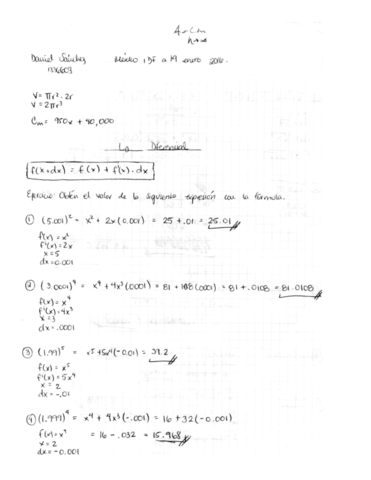 Daniel Sánchez México, DF a 19 enero 2016.
V = πr² · 2r
V = 2πr³
Cm = 950x + 90,000
La Diferencial
f(x+dx) = f(x) + f'(x) · dx
Ejercicio: Obtén el valor de la siguiente expresión con la fórmula.
① (5.001)² = x² + 2x(0.001) = 25 + .01 = 25.01
f(x) = x²
f'(x) = 2x
x = 5
dx = 0.001
② (3.0001)⁴ = x⁴ + 4x³(.0001) = 81 + 108(.0001) = 81 + .0108 = 81.0108
f(x) = x⁴
f'(x) = 4x³
x = 3
dx = .0001
③ (1.99)⁵ = x⁵+5x⁴(-0.01) = 31.2
f(x) = x⁵
f'(x) = 5x⁴
x = 2
dx = -.01
④ (1.999)⁴ = x⁴ + 4x³(-.001) = 16 + 32(-0.001)
f(x) = x⁴ = 16 - .032 = 15.968
x = 2
dx = -0.001